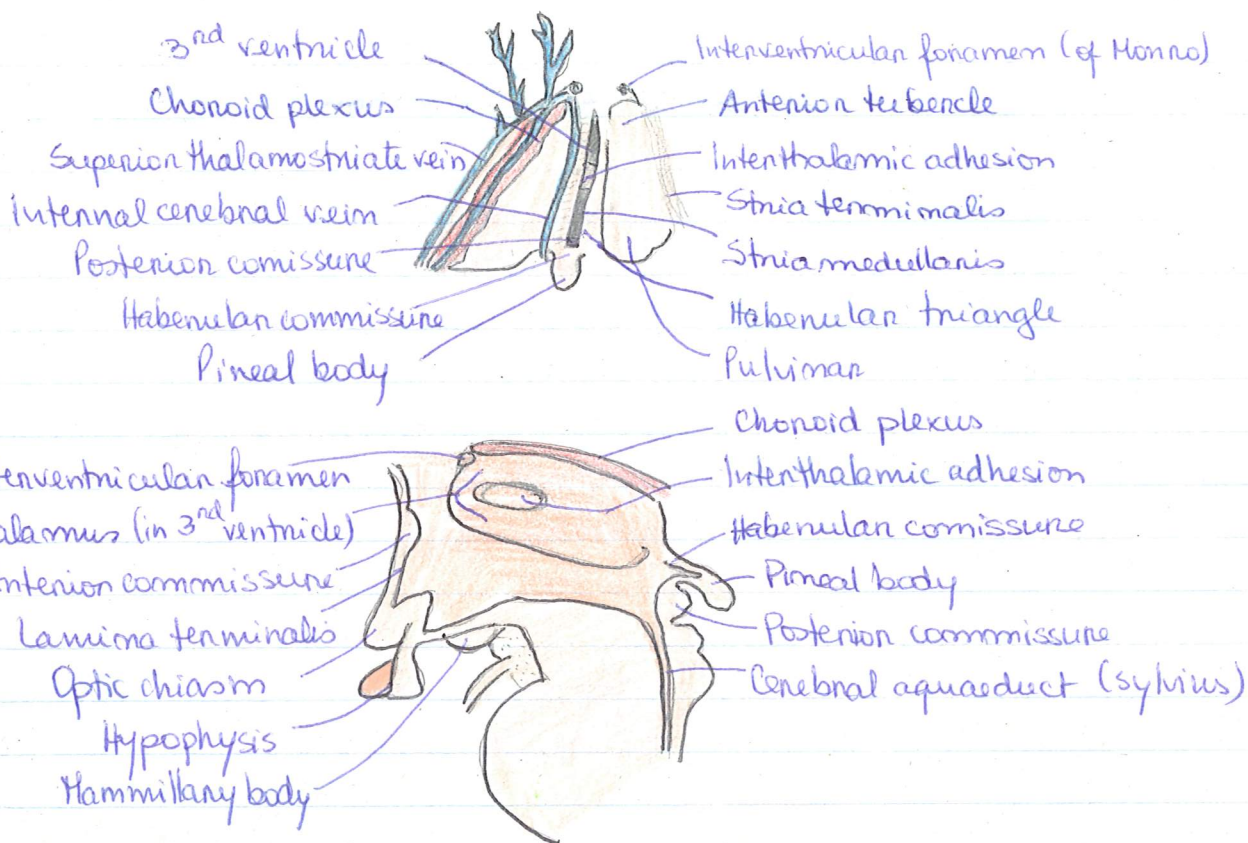 3rd ventricle
Choroid plexus
Superior thalamostriate vein
Internal cerebral vein
Posterior comissure
Habenular commissure
Pineal body
Interventricular foramen (of Monro)
Anterior tubercle
Interthalamic adhesion
Stria terminalis
Stria medullaris
Habenular triangle
Pulvinar
enventricular foramen
alamus (in 3rd ventricle)
nterior commmissure
Lamina terminalis
Optic chiasm
Hypophysis
Mammillary body
Choroid plexus
Interthalamic adhesion
Habenular comissure
Pineal body
Posterior commmissure
Cerebral aquaeduct (Sylvius)